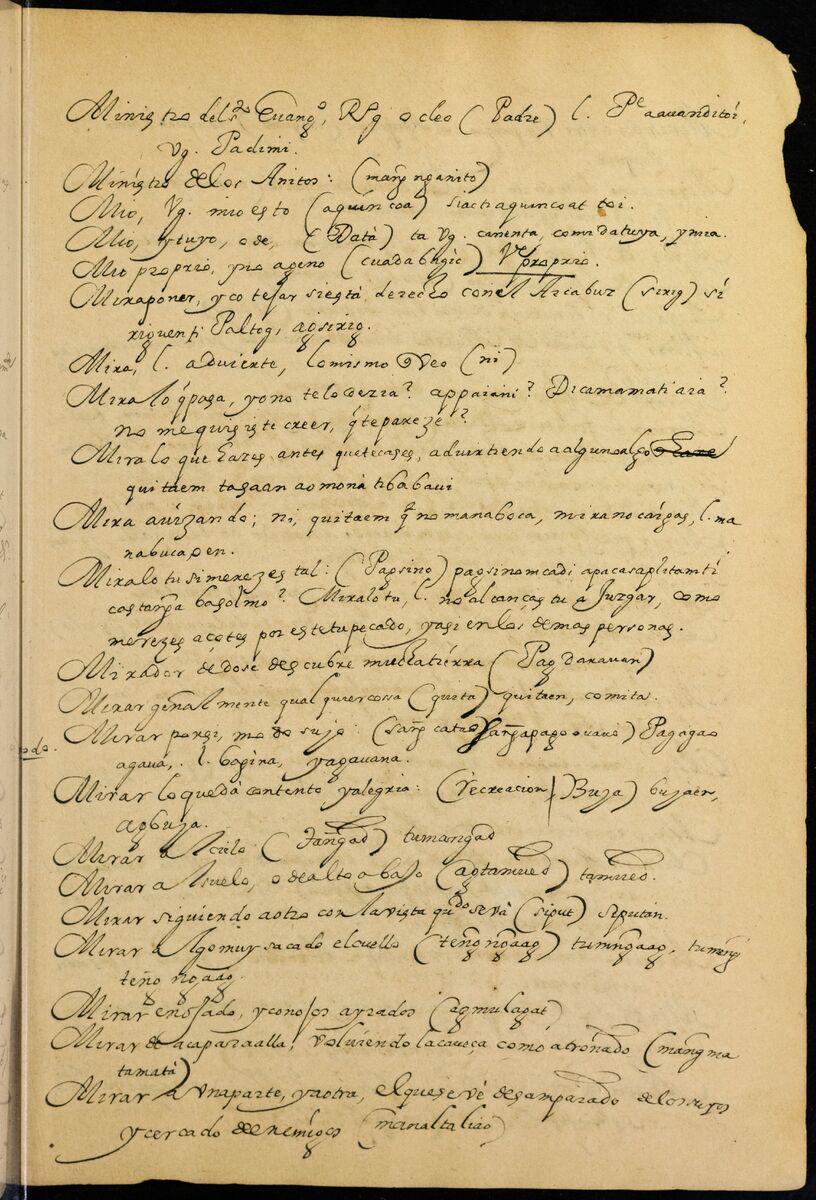 Ministro del S.to Euang.o, RPg o cleo (Padre) l. Pe aauanditoi,
Vg. Padimi.
Ministro de los Anitos: (mang̃ nganito)
Mio, Vg. mio esto (aquincoa) siachaquincoat toi.
Mio, y tuyo, o de, (Datà) ta Vg. canenta, comida tuya, y mia.
Mio proprio, y no ageno (cuadabagic) Ve proprio.
Mira poner, y cotejar si està derecho con el Arcabuz (sirig) si
riguenti Paltog, agsirig.
Mira, l. aduierte, lo mismo Veo (ni)
Mira lo q̃ pasa, yo no te lo dezia? appaiani? Dicamamatiaia?
no me quisiste creer, q̃ te pareze?
Mira lo que hazes antes que te cases, aduirtiendo a alguno algo
quitaem tagaan ao mona ti babaui
Mira auizando; ni, quitaem q̃ no manaboca, mira no caigas, l. ma
nabucapen.
Miralo tu si merezes tal: (Pagsino) pagsinomcadi apacasaplitamti
castang̃a basolmo? Miralo tu, l. no alcanças tu a Juzgar, como
merezes açotes por este tu pecado, y asi en los demas personas.
Mirador de dose descubre mucha tierra (Pagdarauan)
Mirar gen̄almente qualquier cossa (quita) quitaen, comita.
Mirar por si, modo suyo: (sang̃catao sang̃apagoouauo) Pagagao
agaua, l. bagina, yagauana.
Mirar lo que dà contento y alegria: (recreacion, Buja) bujaen,
agbuja.
Mirar al cielo (Tang̃ad) tumangad
Mirar al suelo, o de alto a bajo (agtamued) tamued.
Mirar siguiendo a otro con la vista qu.do se và (siput) siputan.
Mirar algo muy sacado el cuello (teng̃ng̃aag) tumng̃aag,
teng̃ ng̃aag.
Mirar enojado, y con ojos ayrados (agmulagat)
Mirar de aca para alla, voluiendo la caueça como atronado (mang̃ma
tamatà)
Mirar a vna parte, y a otra, el que se vè desamparado de los suyos
y cercado de enemigos (manaltaliao)